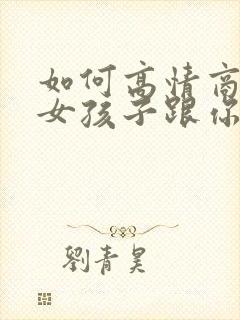 如何高情商
女孩子跟你
劉青昊